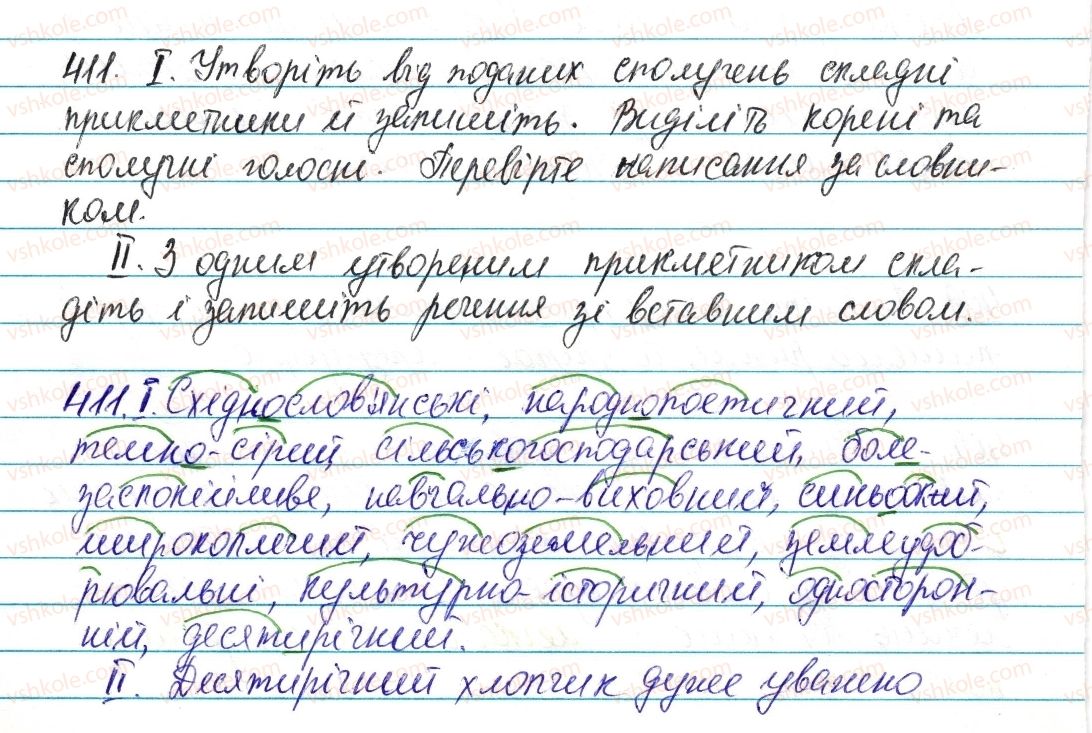 411. І. Утворіть від поданих сполучень складні
прикметники й запишіть. Виділіть корені та
сполучні голосні. Перевірте написання за словни-
ком.
ІІ. З одним утвореним прикметником скла-
діть і запишіть речення зі вставним словом.
411. І. Східнослов'янські, народнопоетичний,
темно-сірий, сільськогосподарський, боле-
заспокійливе, навчально-виховний, синьоокий,
широкоплечий, чужоземельний, землеудоб-
рювальні, культурно-історичний, односторон-
ній, десятирічний.
ІІ. Десятирічний хлопчик дуже уважно